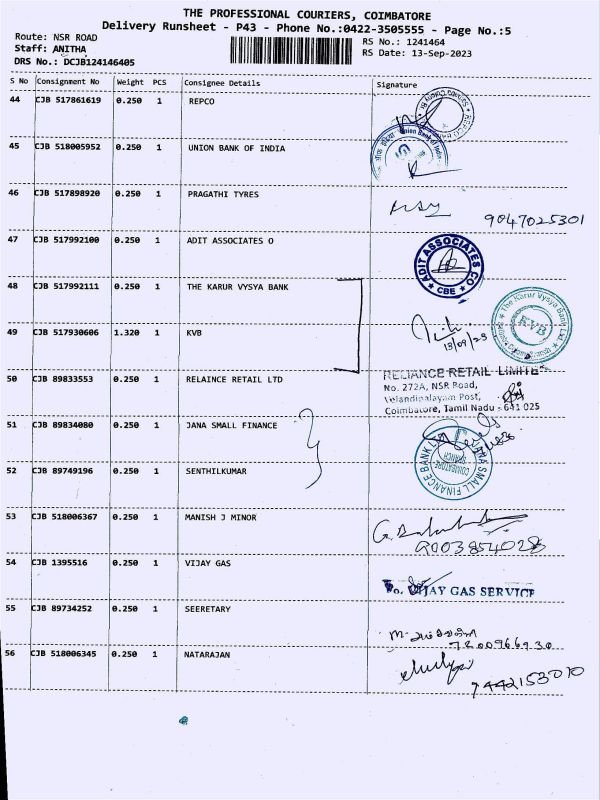 THE PROFESSIONAL COURIERS, COIMBATORE
Delivery Runsheet - P43 - Phone No.:0422-3505555 - Page No.:5
Route: NSR ROAD
Staff: ANITHA
DRS No.: DCJB124146405
RS No.: 1241464
RS Date: 13-Sep-2023
S No Consignment No Weight PCS Consignee Details Signature
44 CJB 517861619 0.250 1 REPCO
45 CJB 518005952 0.250 1 UNION BANK OF INDIA
Union Bank of India
46 CJB 517898920 0.250 1 PRAGATHI TYRES
9047025301
47 CJB 517992100 0.250 1 ADIT ASSOCIATES O
ADIT ASSOCIATES CO
CBE
48 CJB 517992111 0.250 1 THE KARUR VYSYA BANK
The Karur Vysya Bank Ltd
KVB
49 CJB 517930606 1.320 1 KVB
13/09/23
50 CJB 89833553 0.250 1 RELAINCE RETAIL LTD
RELIANCE RETAIL LIMITED
No. 272A, NSR Road,
Velandipalayam Post,
Coimbatore, Tamil Nadu - 641 025
51 CJB 89834080 0.250 1 JANA SMALL FINANCE
JANA SMALL FINANCE BANK LTD
COIMBATORE
BRANCH
52 CJB 89749196 0.250 1 SENTHILKUMAR
53 CJB 518006367 0.250 1 MANISH J MINOR
9003854028
54 CJB 1395516 0.250 1 VIJAY GAS
VIJAY GAS SERVICE
55 CJB 89734252 0.250 1 SEERETARY
7200966930
56 CJB 518006345 0.250 1 NATARAJAN
9442153010